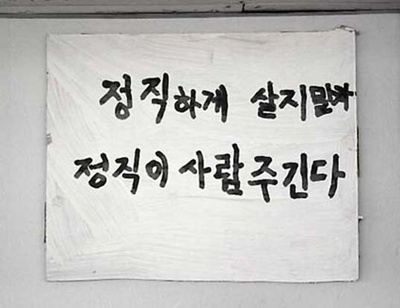 정직하게 살지말자
정직이 사람주긴다